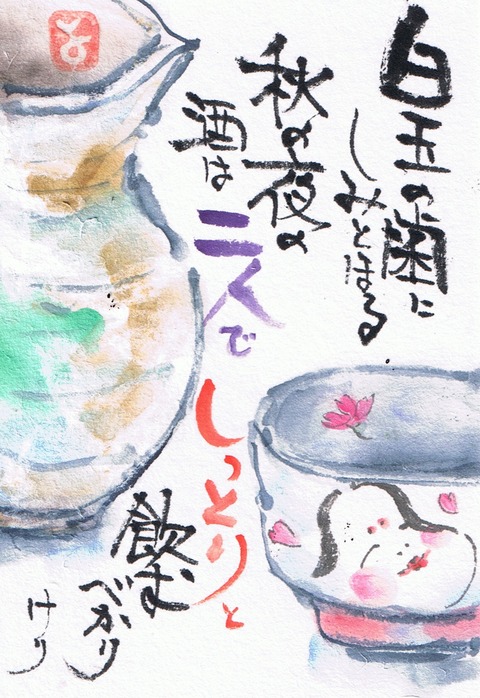 白玉の歯に
しみとほる
秋の夜の
酒は二人で
しっとりと
飲む
べかり
けり